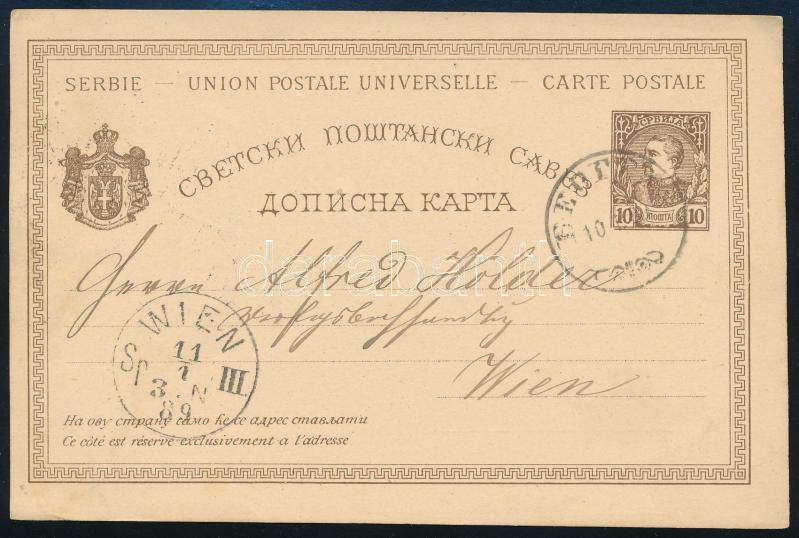 SERBIE — UNION POSTALE UNIVERSELLE — CARTE POSTALE
СВЕТСКИ ПОШТАНСКИ САВЕЗ
ДОПИСНА КАРТА
СРБИЈА
10 ПОШТА 10
10
Herrn Alfred Hölder
Wien
WIEN
11
1
3. N
89
III
На ову страну само ће се адрес стављати
Ce côté est réservé exclusivement a l'adresse
darabanth.com